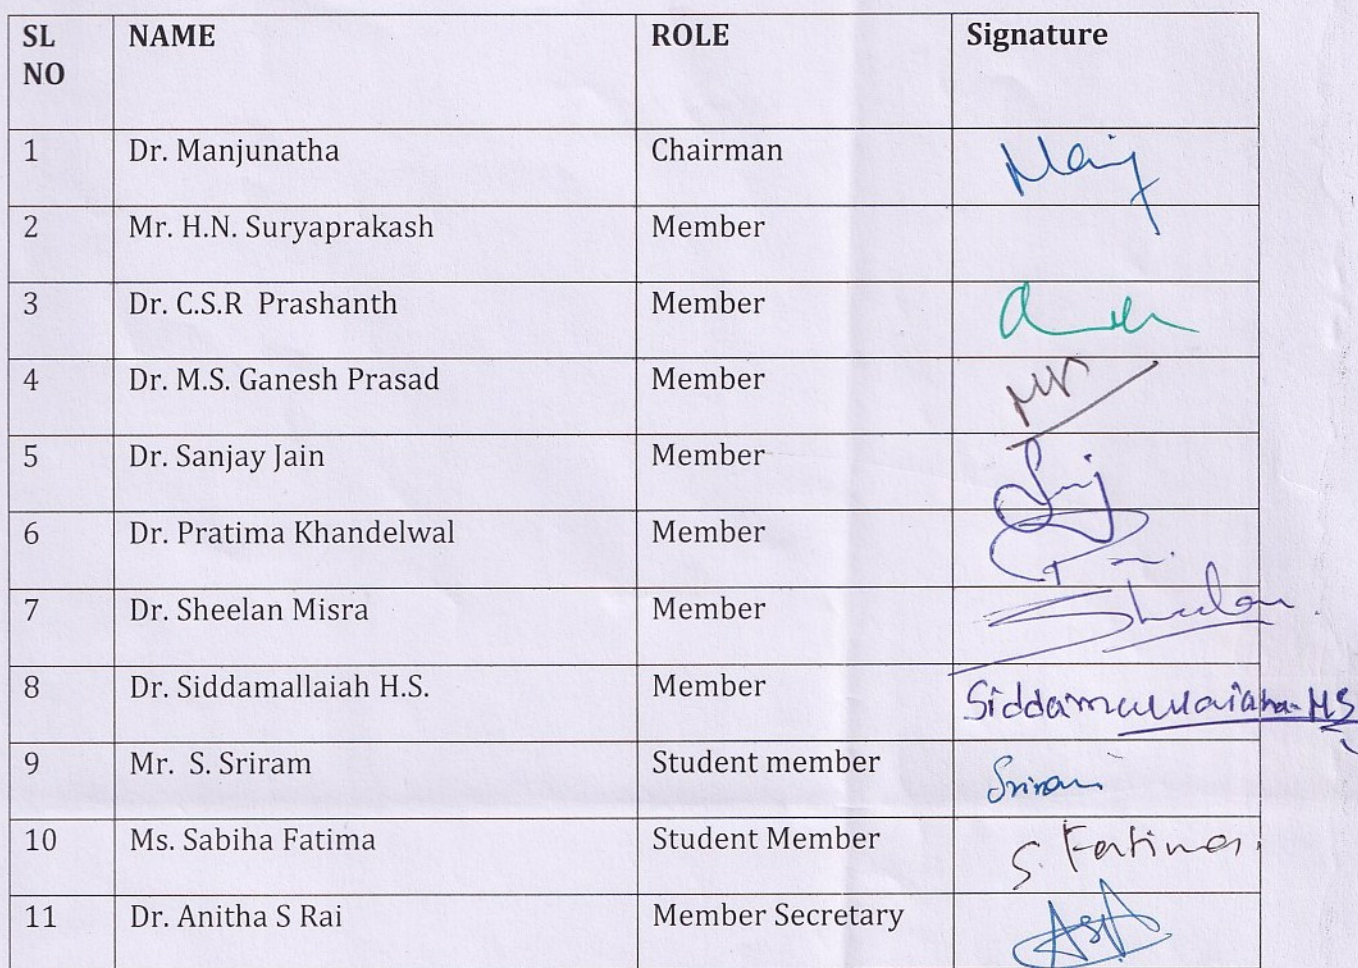 SL NO NAME ROLE Signature
1 Dr. Manjunatha Chairman Manj
2 Mr. H.N. Suryaprakash Member
3 Dr. C.S.R Prashanth Member
4 Dr. M.S. Ganesh Prasad Member
5 Dr. Sanjay Jain Member
6 Dr. Pratima Khandelwal Member
7 Dr. Sheelan Misra Member Sheelan
8 Dr. Siddamallaiah H.S. Member Siddamallaiah HS
9 Mr. S. Sriram Student member Sriram
10 Ms. Sabiha Fatima Student Member S. Fatima
11 Dr. Anitha S Rai Member Secretary